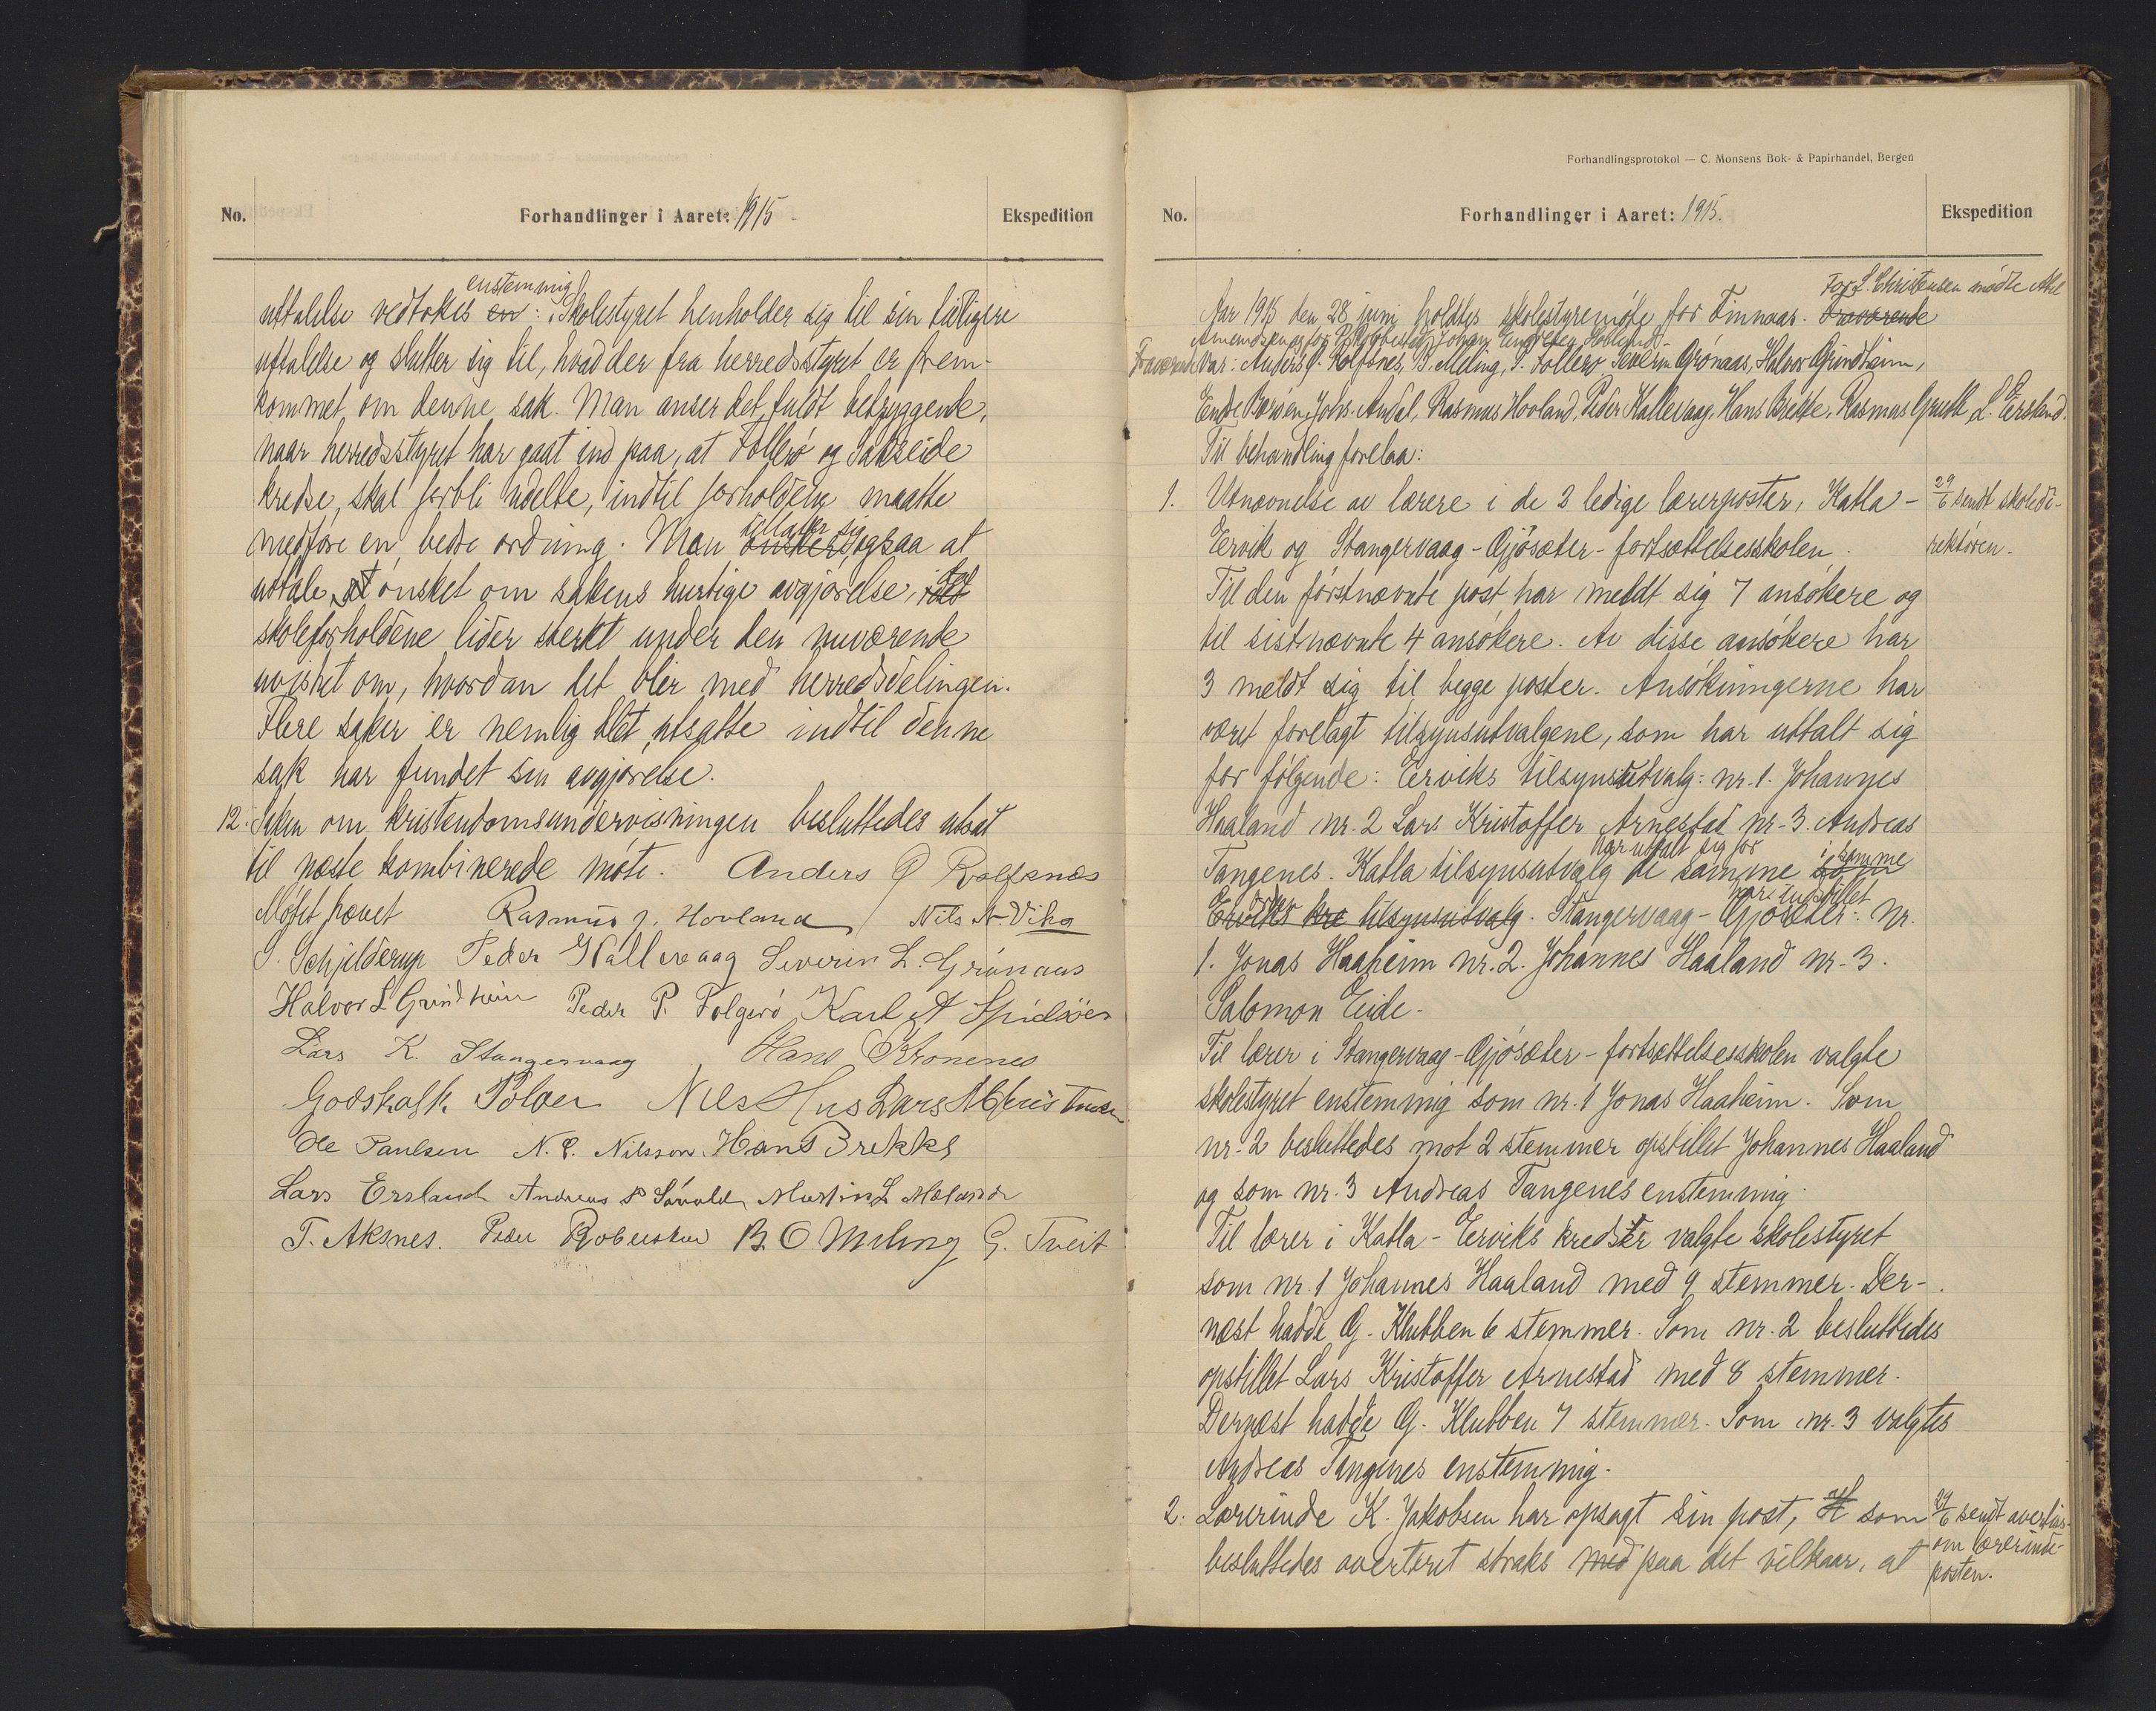 No. Forhandlinger i Aaret: 1915 Ekspedition
enstemmig
uttalelse vedtokes en: "Skolestyret henholder sig til sin tidligere
uttalelse og slutter sig til, hvad der fra herredsstyret er frem-
kommet om denne sak. Man anser det fuldt betryggende,
naar herredsstyret har gaat ind paa, at Follerö og Sakseide
kredse, skal forbli udelte, indtil forholdene maatte
medføre en bedre ordning. Man ønsker ogsaa at
tillater sig
uttale, at ønsket om sakens hurtige avgjørelse, idet
skoleforholdene lider sterkt under den nuværende
uvishet om, hvordan det blir med herredsdelingen.
Flere saker er nemlig blet utsatte indtil denne
sak har fundet sin avgjørelse.
12. Saken om kristendomsundervisningen besluttedes utsat
til næste kombinerede møte. Anders O Rolfsnæs
Møtet hævet Rasmus J. Hovland Nils N. Vika
S. Schjelderup Peder Hallevaag Severin L. Grönaas
Halvor L Grindheim Peder P. Folgerö Karl A
Lars K. Stangervaag Hans Kronenes
Godskalk Polden Nils Hus Lars M Christensen
Ole Paulsen N. E. Nilsson. Hans Brekke
Lars Ersland Andreas Martin L Mæland
T. Aksnes. Peder Robberstad B. O Meling G. Tveit
Forhandlingsprotokol — C. Monsens Bok- & Papirhandel, Bergen
No. Forhandlinger i Aaret: 1915. Ekspedition
For L. Christensen mødte
Aar 1915 den 28 juni holdtes skolestyremøte for Finnaas. Fraværende
Amundsen og for P. Robberstad Johan Engelsen Hovland
Fraværende var: Anders O. Rolfsnes, B. Meling, P. Follerö, Severin Grönaas, Halvor Grindheim,
Endre Børsen, Johs. Andal, Rasmus Hovland, Peder Hallevaag, Hans Brekke, Rasmus L. Ersland.
Til behandling forelaa:
1. Utnævnelse av lærere i de 2 ledige lærerposter, Katla-
29/6 sendt skoledi-
Eervik og Stangervaag-Gjösæter-fortsættelsesskolen.
rektøren.
Til den förstnævnte post har meldt sig 7 ansökere og
til sistnævnte 4 ansökere. Av disse ansökere har
3 meldt sig til begge poster. Ansökningerne har
vært forelagt tilsynsutvalgene, som har uttalt sig
for følgende: Eerviks tilsynsutvalg: nr. 1. Johannes
Haaland nr. 2 Lars Kristoffer Arnestad nr. 3. Andreas
har uttalt sig for
i samme
Tangenes. Katla tilsynsutvalg de samme som
orden
har indstillet
Eerviks kre tilsynsutvalg. Stangervaag-Gjösæter: Nr.
1. Jonas Haaheim nr. 2. Johannes Haaland nr. 3.
Salomon Eide.
Til lærer i Stangervaag-Gjösæter-fortsættelsesskolen valgte
skolestyret enstemmig som nr. 1 Jonas Haaheim. Som
nr. 2 besluttedes mot 2 stemmer opstillet Johannes Haaland
og som nr. 3 Andreas Tangenes enstemmig.
Til lærer i Katla-Eerviks kredser valgte skolestyret
som nr. 1 Johannes Haaland med 9 stemmer. Der-
næst hadde G. Klubben 6 stemmer. Som nr. 2 besluttedes
opstillet Lars Kristoffer Arnestad med 8 stemmer.
Dernæst hadde G. Klubben 7 stemmer. Som nr. 3 valgtes
Andreas Tangenes enstemmig.
2. Lærerinde K. Jakobsen har opsagt sin post, H som
29/6 sendt avertis.
om lærerinde-
besluttedes averteret straks med paa det vilkaar, at
posten.